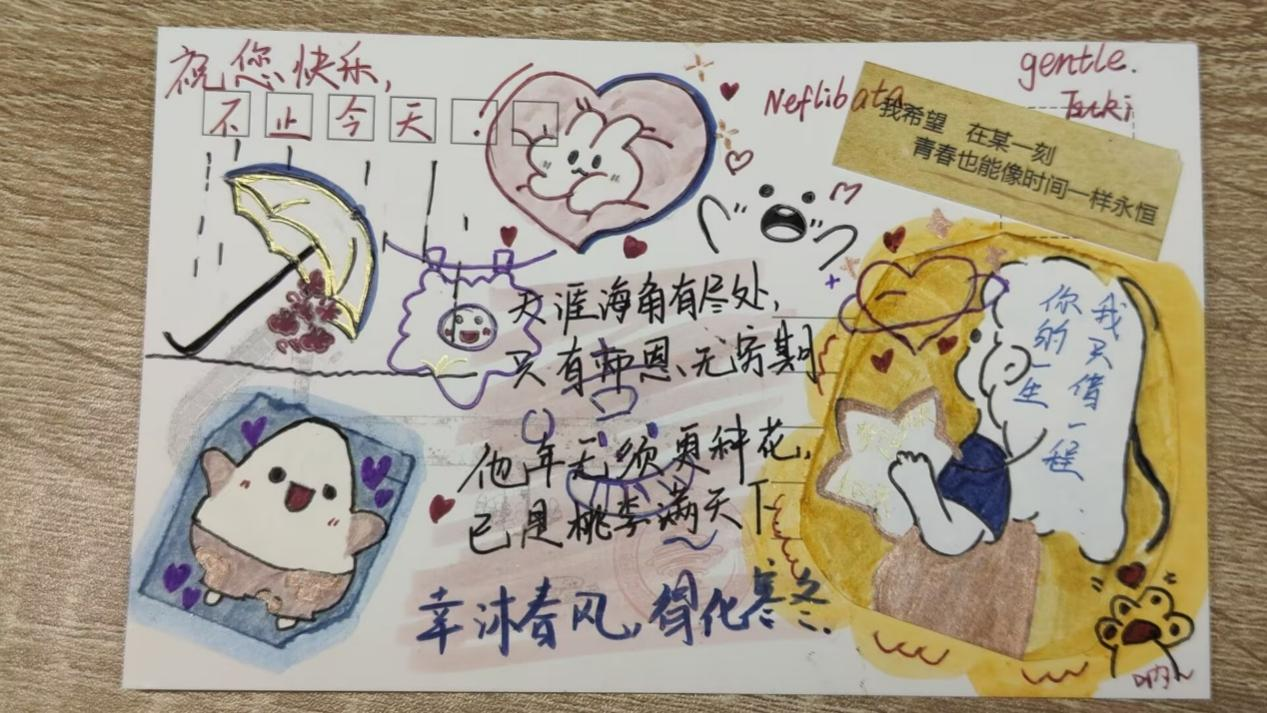 祝您快乐，
不止今天.
gentle.
Neflibata
Tsuki
我希望 在某一刻
青春也能像时间一样永恒
天涯海角有尽处，
只有师恩无穷期
他年无须更种花，
已是桃李满天下
幸沐春风，得化寒冬.
我只借一程
你的一生